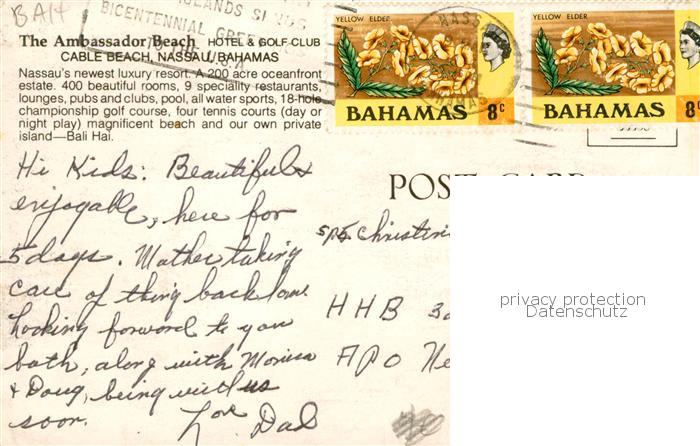 BAH
ISLANDS
BICENTENNIAL
The Ambassador Beach HOTEL & GOLF CLUB
CABLE BEACH, NASSAU/BAHAMAS
Nassau's newest luxury resort. A 200 acre oceanfront
estate. 400 beautiful rooms, 9 speciality restaurants,
lounges, pubs and clubs, pool, all water sports, 18-hole
championship golf course, four tennis courts (day or
night play) magnificent beach and our own private
island—Bali Hai.
YELLOW ELDER
BAHAMAS 8c
YELLOW ELDER
BAHAMAS 8c
POST CARD
Hi Kids: Beautiful &
enjoyable, here for
5 days. Mother taking
care of thing back home
Looking forward to you
both, along with Monica
& Doug, being with us
soon.
Love Dad
SP5 Christin
HHB
APO Ne
privacy protection
Datenschutz